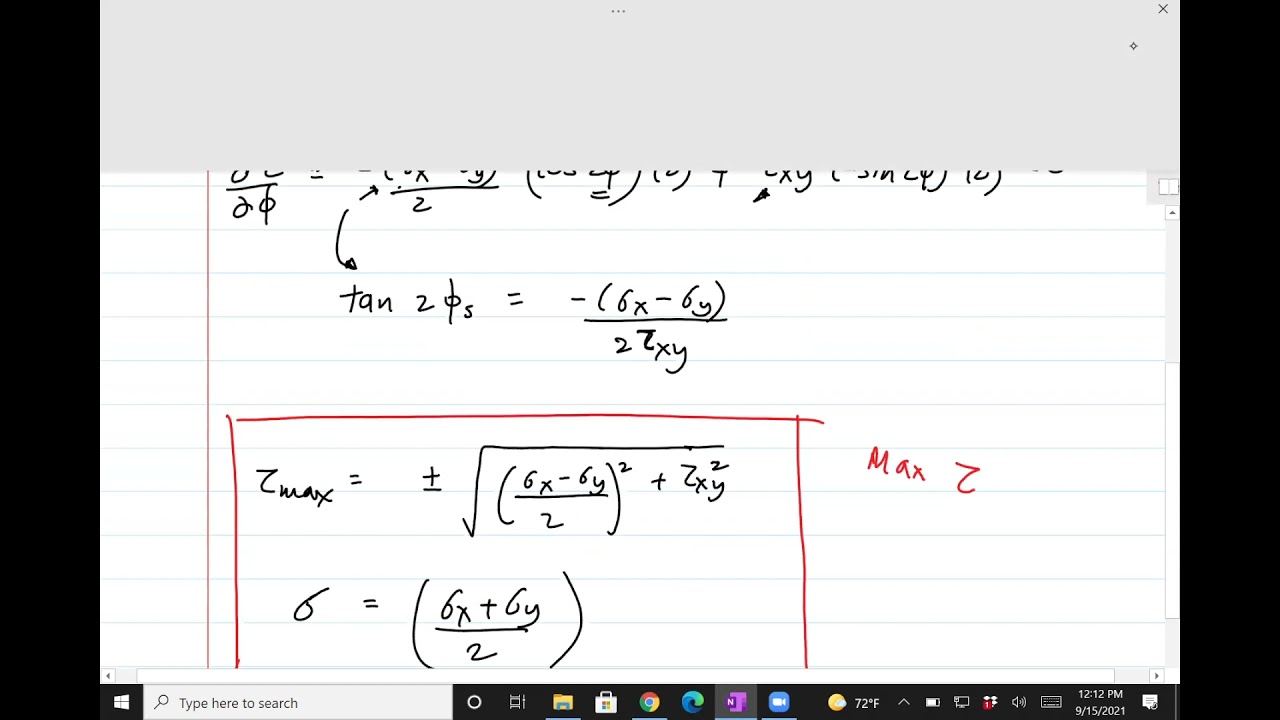 ∂τ/∂ϕ = -(σx - σy)/2 (cos 2ϕ)(2) + τxy (-sin 2ϕ)(2) = 0
tan 2ϕs = -(σx - σy)/2τxy
τmax = ± √(((σx - σy)/2)² + τxy²)
Max τ
σ = ((σx + σy)/2)
Type here to search
72°F
12:12 PM
9/15/2021